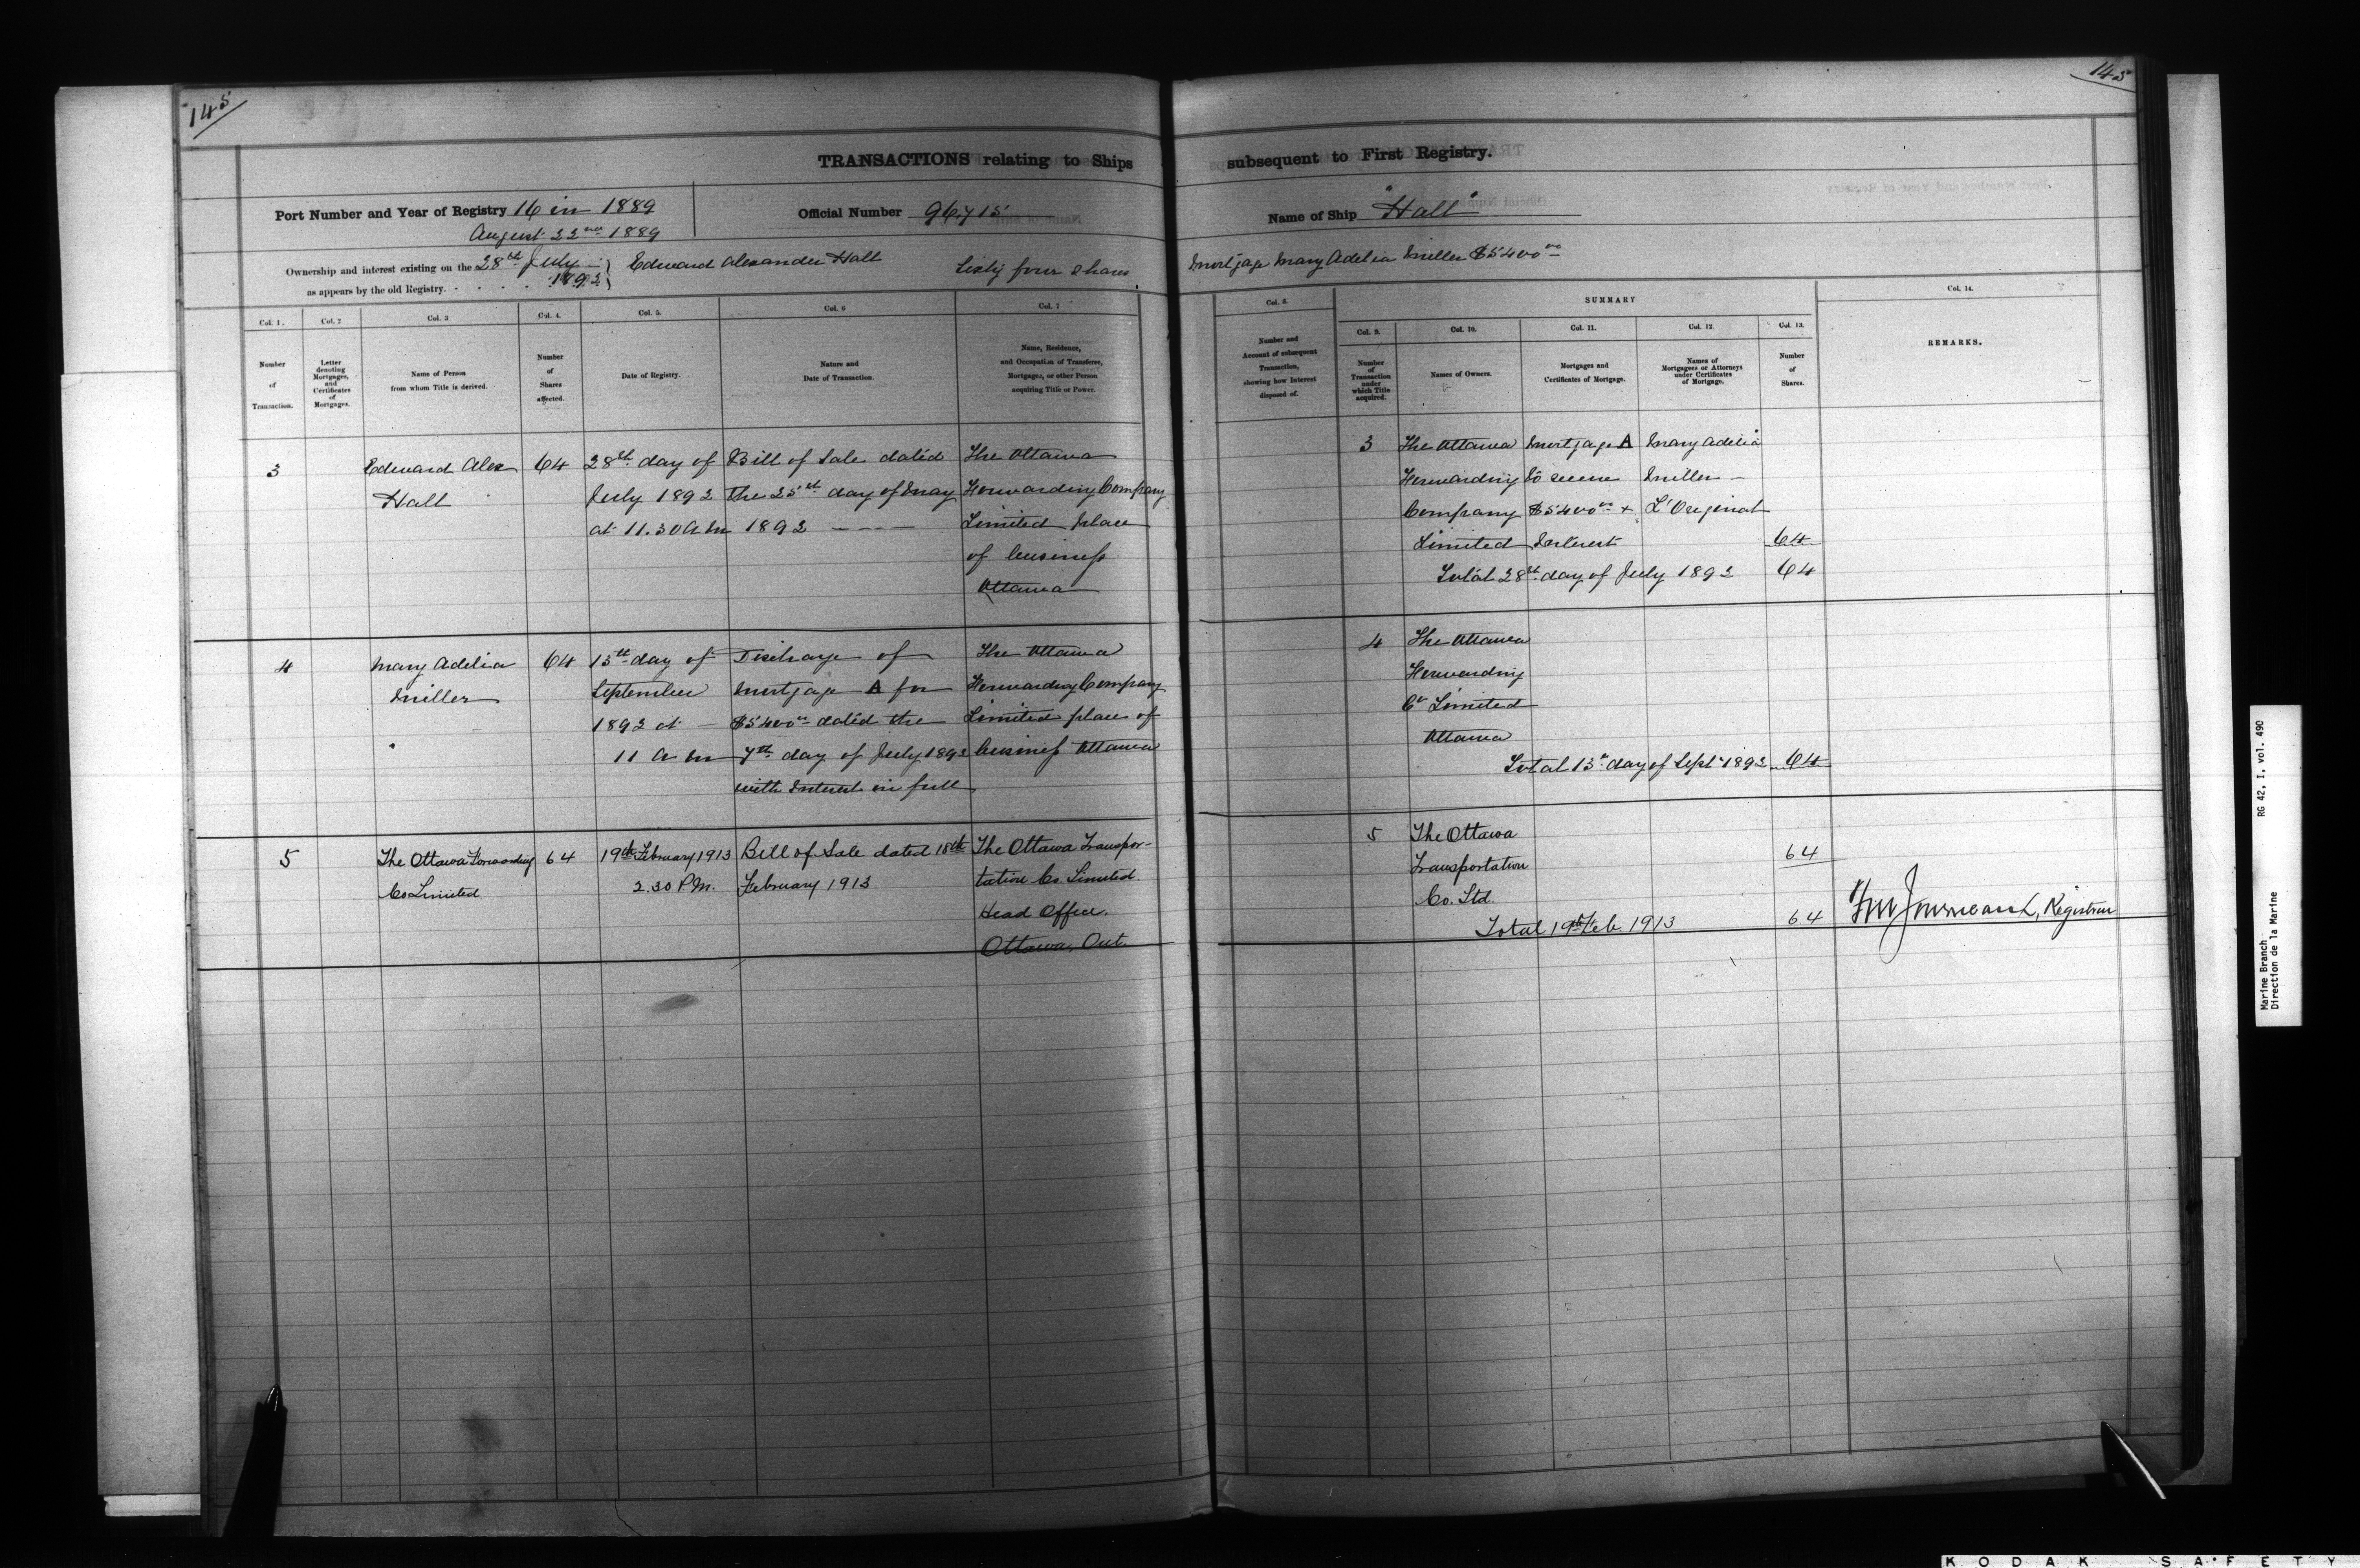 145
145
TRANSACTIONS relating to Ships subsequent to First Registry.
Port Number and Year of Registry 16 in 1889
August 22nd 1889
Official Number 96,715
Name of Ship "Hall"
Ownership and interest existing on the 28th July 1892
as appears by the old Registry. . . . .
Edward Alexander Hall Sixty four shares
Mortgage Mary Adelia Miller $5400 00
Col. 1.
Number
of
Transaction.
Col. 2
Letter
denoting
Mortgages,
and
Certificates
of
Mortgages.
Col. 3
Name of Person
from whom Title is derived.
Col. 4.
Number
of
Shares
affected.
Col. 5.
Date of Registry.
Col. 6
Nature and
Date of Transaction.
Col. 7
Name, Residence,
and Occupation of Transferee,
Mortgagee, or other Person
acquiring Title or Power.
Col. 8.
Number and
Account of subsequent
Transaction,
showing how Interest
disposed of.
SUMMARY
Col. 9.
Number
of
Transaction
under
which Title
acquired.
Col. 10.
Names of Owners.
Col. 11.
Mortgages and
Certificates of Mortgage.
Col. 12
Names of
Mortgagees or Attorneys
under Certificates
of Mortgage.
Col. 13.
Number
of
Shares.
Col. 14.
REMARKS.
3
Edward Alex
Hall
64
28th day of
July 1892
at 11.30 A M
Bill of Sale dated
the 25th day of May
1892
The Ottawa
Forwarding Company
Limited place
of business
Ottawa
3
The Ottawa
Forwarding
Company
Limited
Mortgage A
to secure
$5400 00 +
Interest
Mary Adelia
Miller
L'Orignal
64
Total 28th day of July 1892 64
4
Mary Adelia
Miller
64
13th day of
September
1892 at
11 A M
Discharge of
Mortgage A for
$5400 00 dated the
7th day of July 1892
with Interest in full
The Ottawa
Forwarding Company
Limited place of
business Ottawa
4
The Ottawa
Forwarding
Co Limited
Ottawa
Total 13th day of Sept 1892 64
5
The Ottawa Forwarding
Co Limited.
64
19th February 1913
2.30 P.M.
Bill of Sale dated 18th
February 1913
The Ottawa Transpor-
tation Co. Limited
Head Office,
Ottawa, Ont.
5
The Ottawa
Transportation
Co. Ltd.
64
Total 19th Feb. 1913 64
Registrar
Marine Branch RG 42, I, vol. 490
Direction de la Marine
KODAK SAFETY